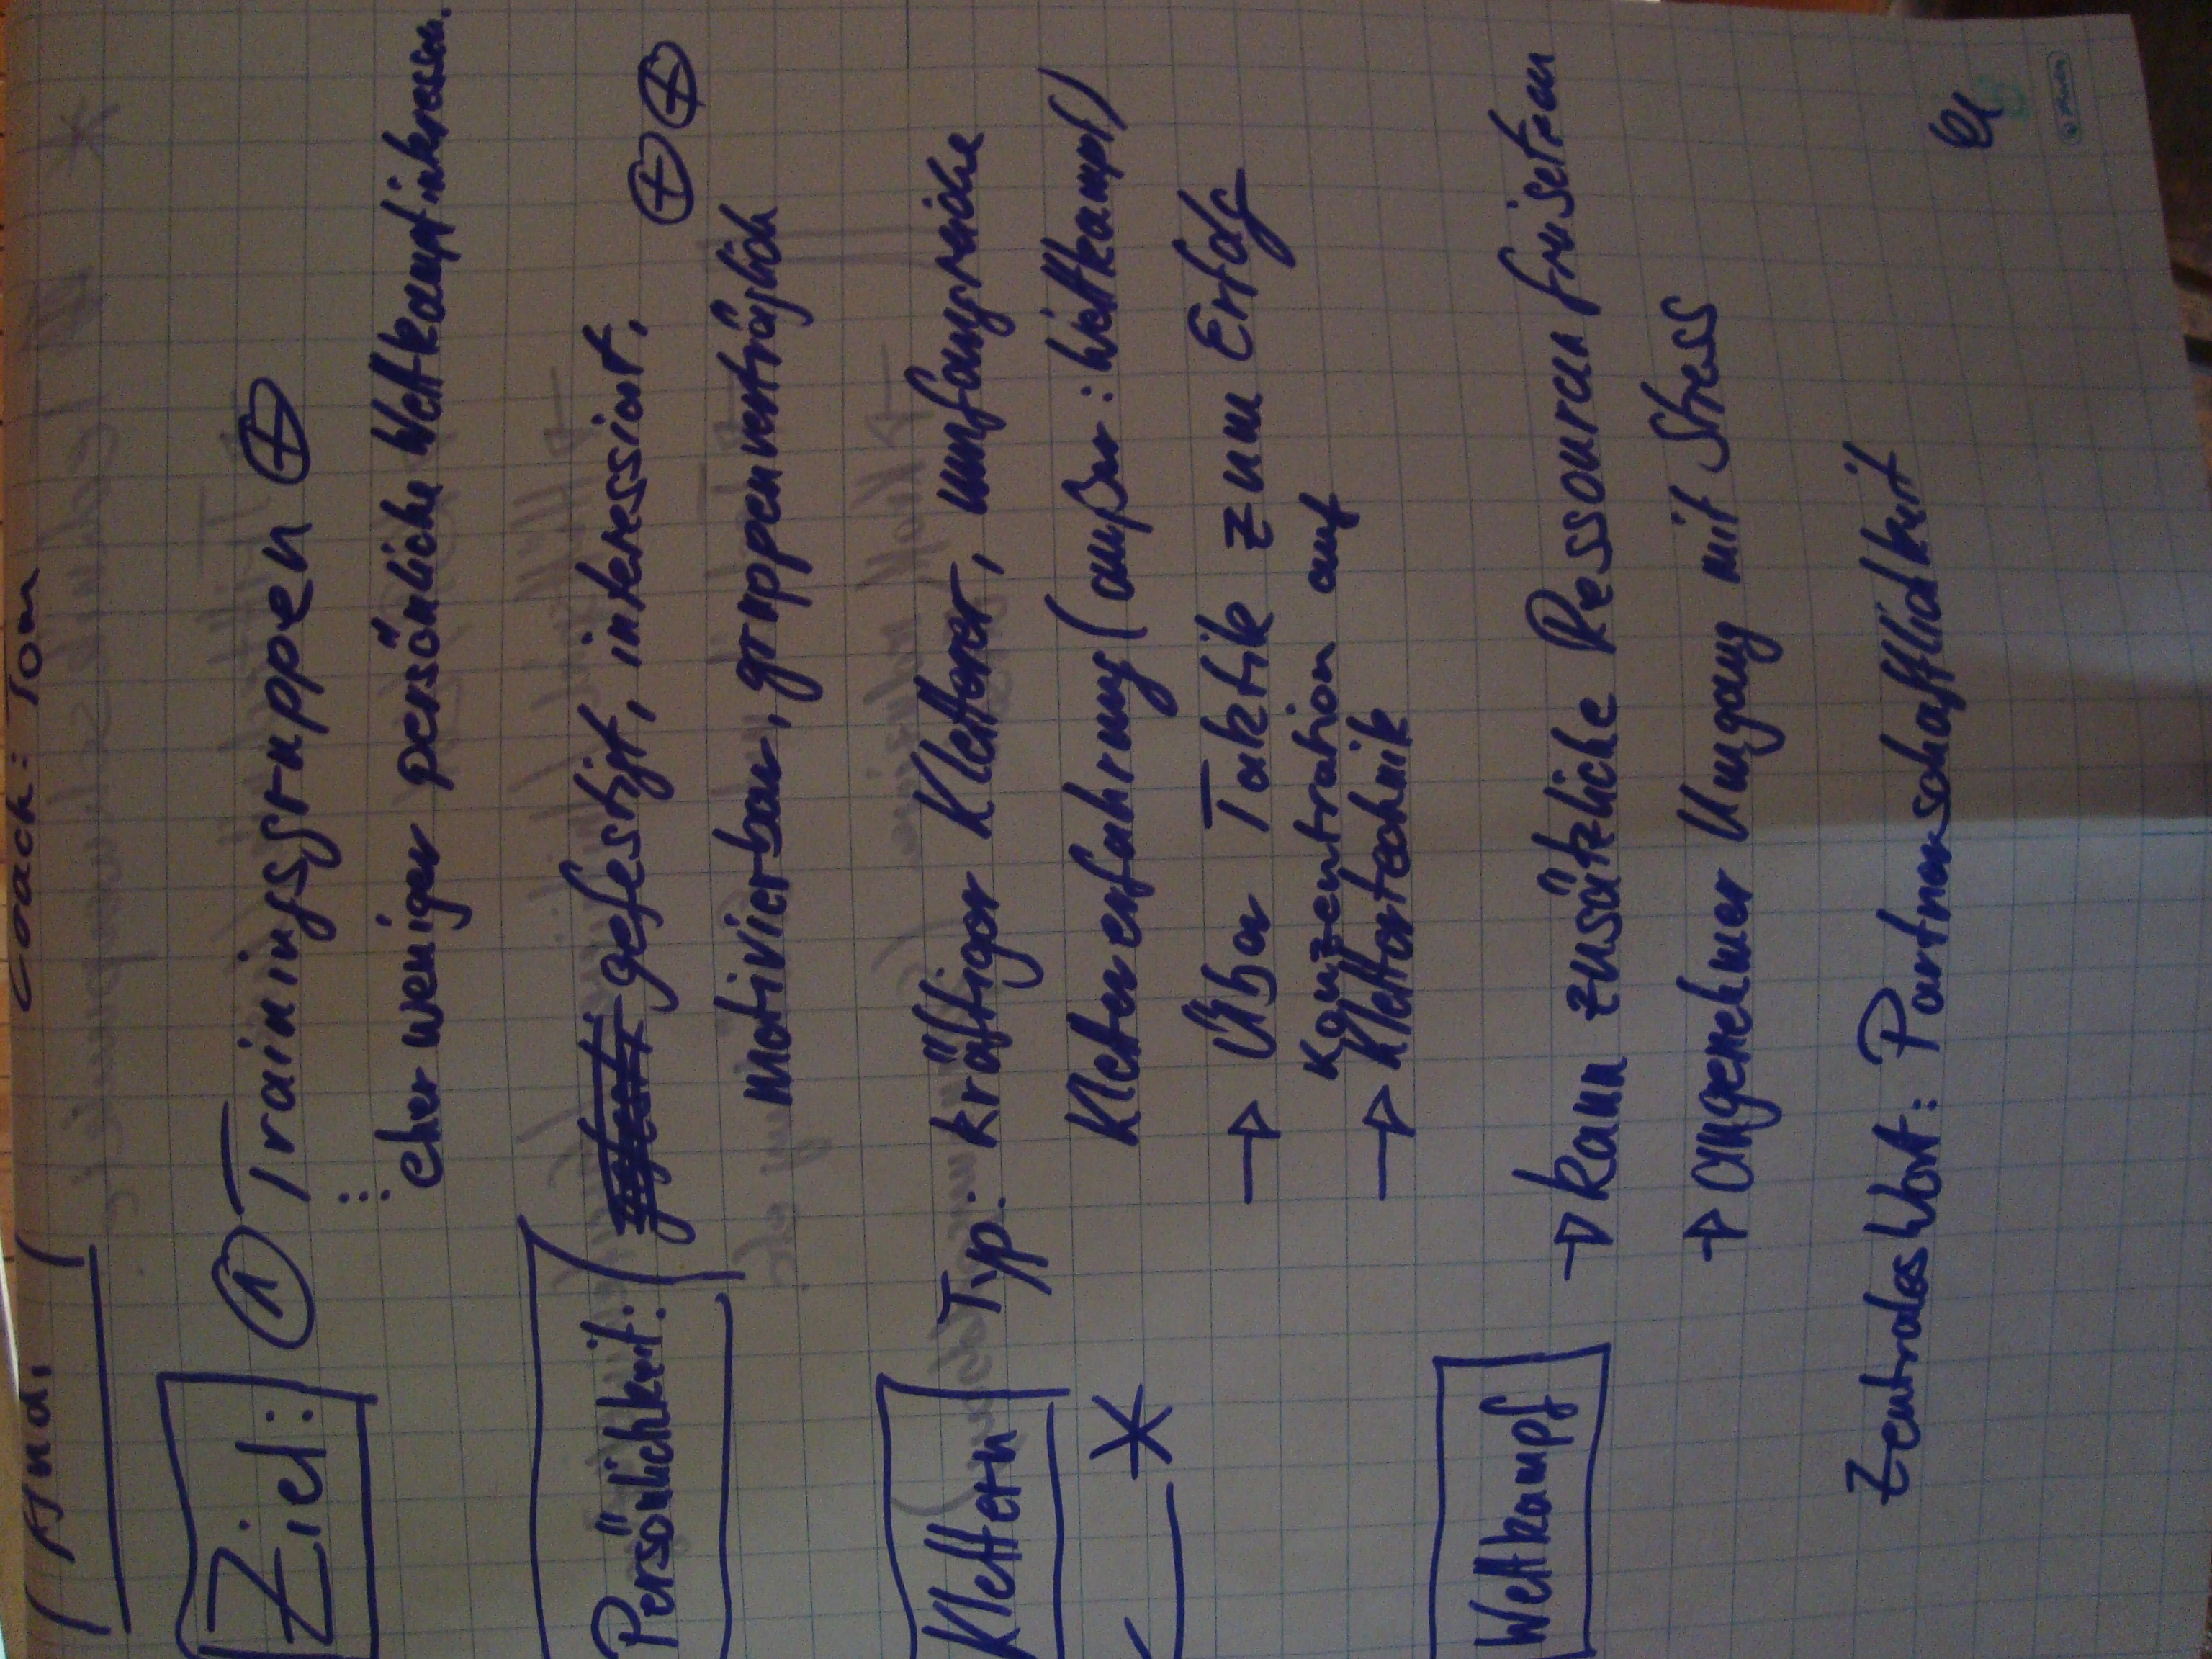 Andi Coach: Tom
Ziel: ① Trainingsgruppen ⊕
eher weniger persönliche Wettkampfinteressen.
Persönlichkeit: gefestigt, interessiert,
motivierbar, gruppenverträglich ⊕ ⊕
Klettern Typ: kräftiger Kletterer, umfangreiche
Klettererfahrung (außer: Wettkampf)
→ Über Taktik zum Erfolg
Konzentration auf
→ Klettertechnik
Wettkampf → kann zusätzliche Ressourcen freisetzen
→ angenehmer Umgang mit Stress
Zentrales Wort: Partnerschaftlichkeit